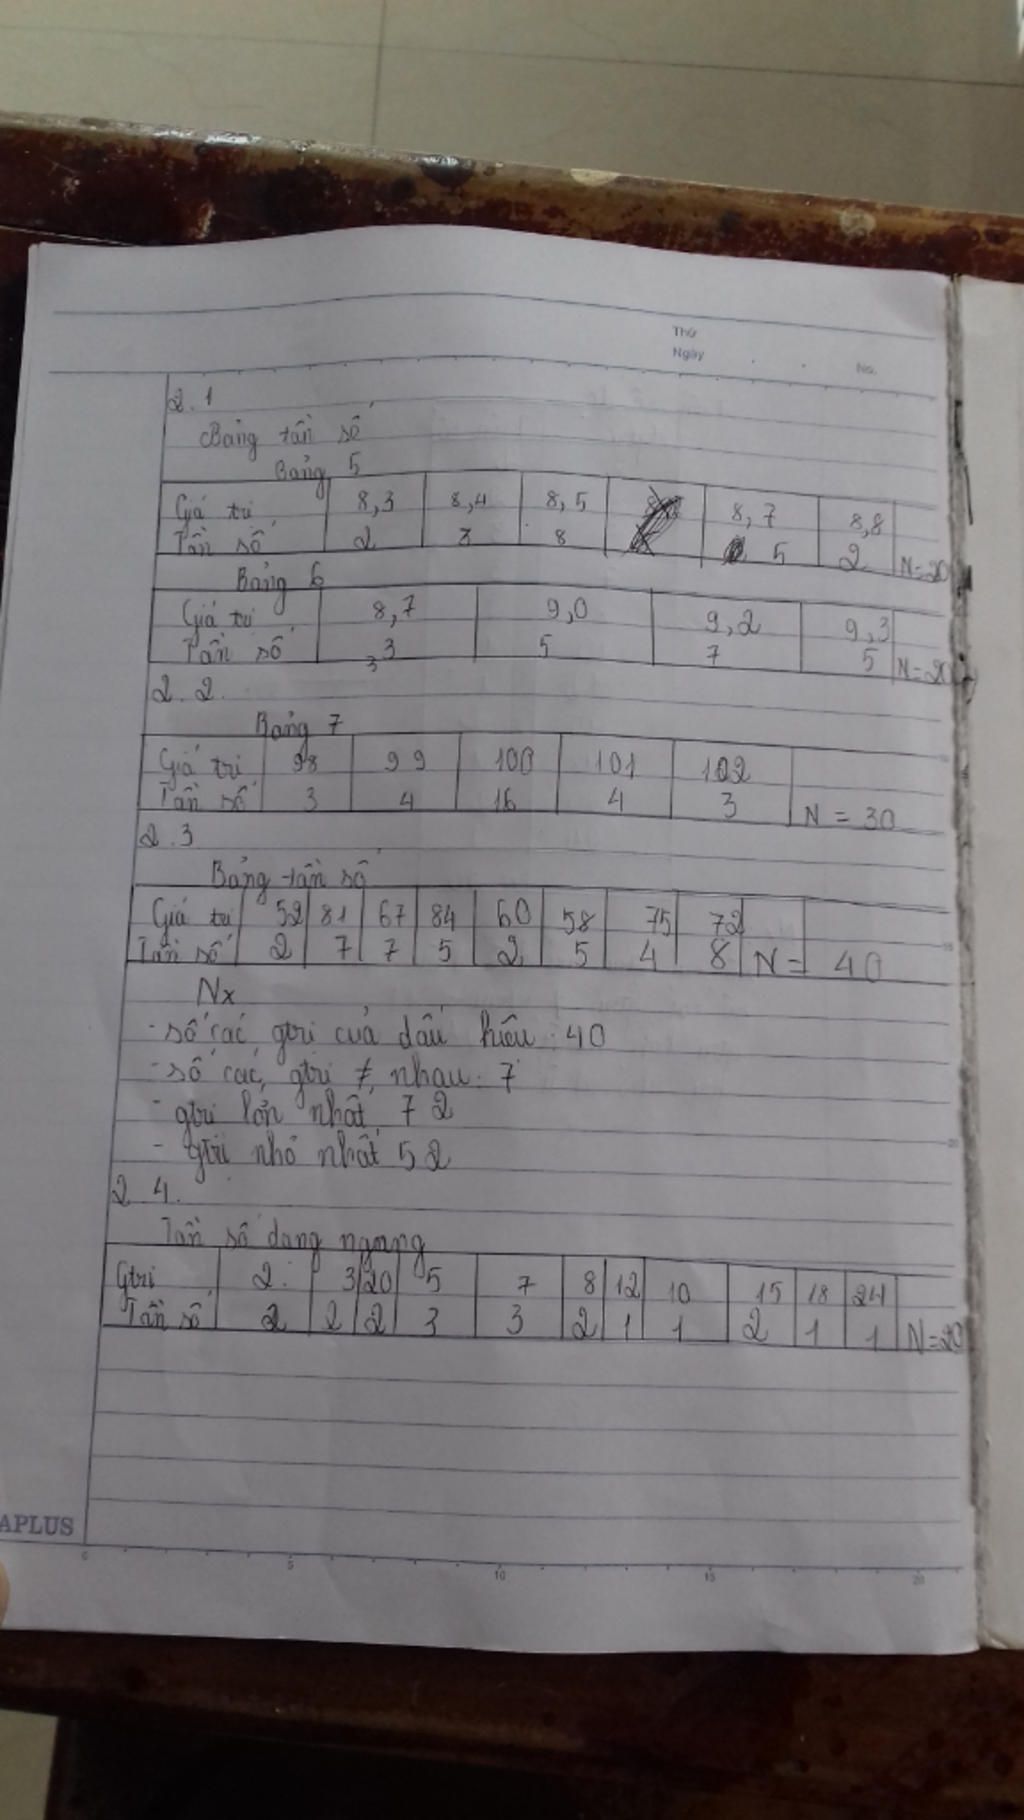 Thứ
Ngày
No.
2.1
Bảng tần số
Bảng 5
Giá trị 8,3 8,4 8,5 8,7 8,8
Tần số 2 3 8 5 2 N=20
Bảng 6
Giá trị 8,7 9,0 9,2 9,3
Tần số 3 5 7 5 N=20
3
2.2.
Bảng 7
Giá trị 98 99 100 101 102
Tần số 3 4 16 4 3 N = 30
2.3
Bảng tần số
Giá trị 52 81 67 84 60 58 75 72
Tần số 2 7 7 5 2 5 4 8 N = 40
Nx
- số các gtri của dấu hiệu : 40
- số các gtri ≠ nhau : 7
- gtri lớn nhất 72
- gtri nhỏ nhất 52
2 4.
Tần số dạng ngang
Gtri 2 3 20 5 7 8 12 10 15 18 24
Tần số 2 2 2 3 3 2 1 1 2 1 1 N=20
APLUS
0 5 10 15 20